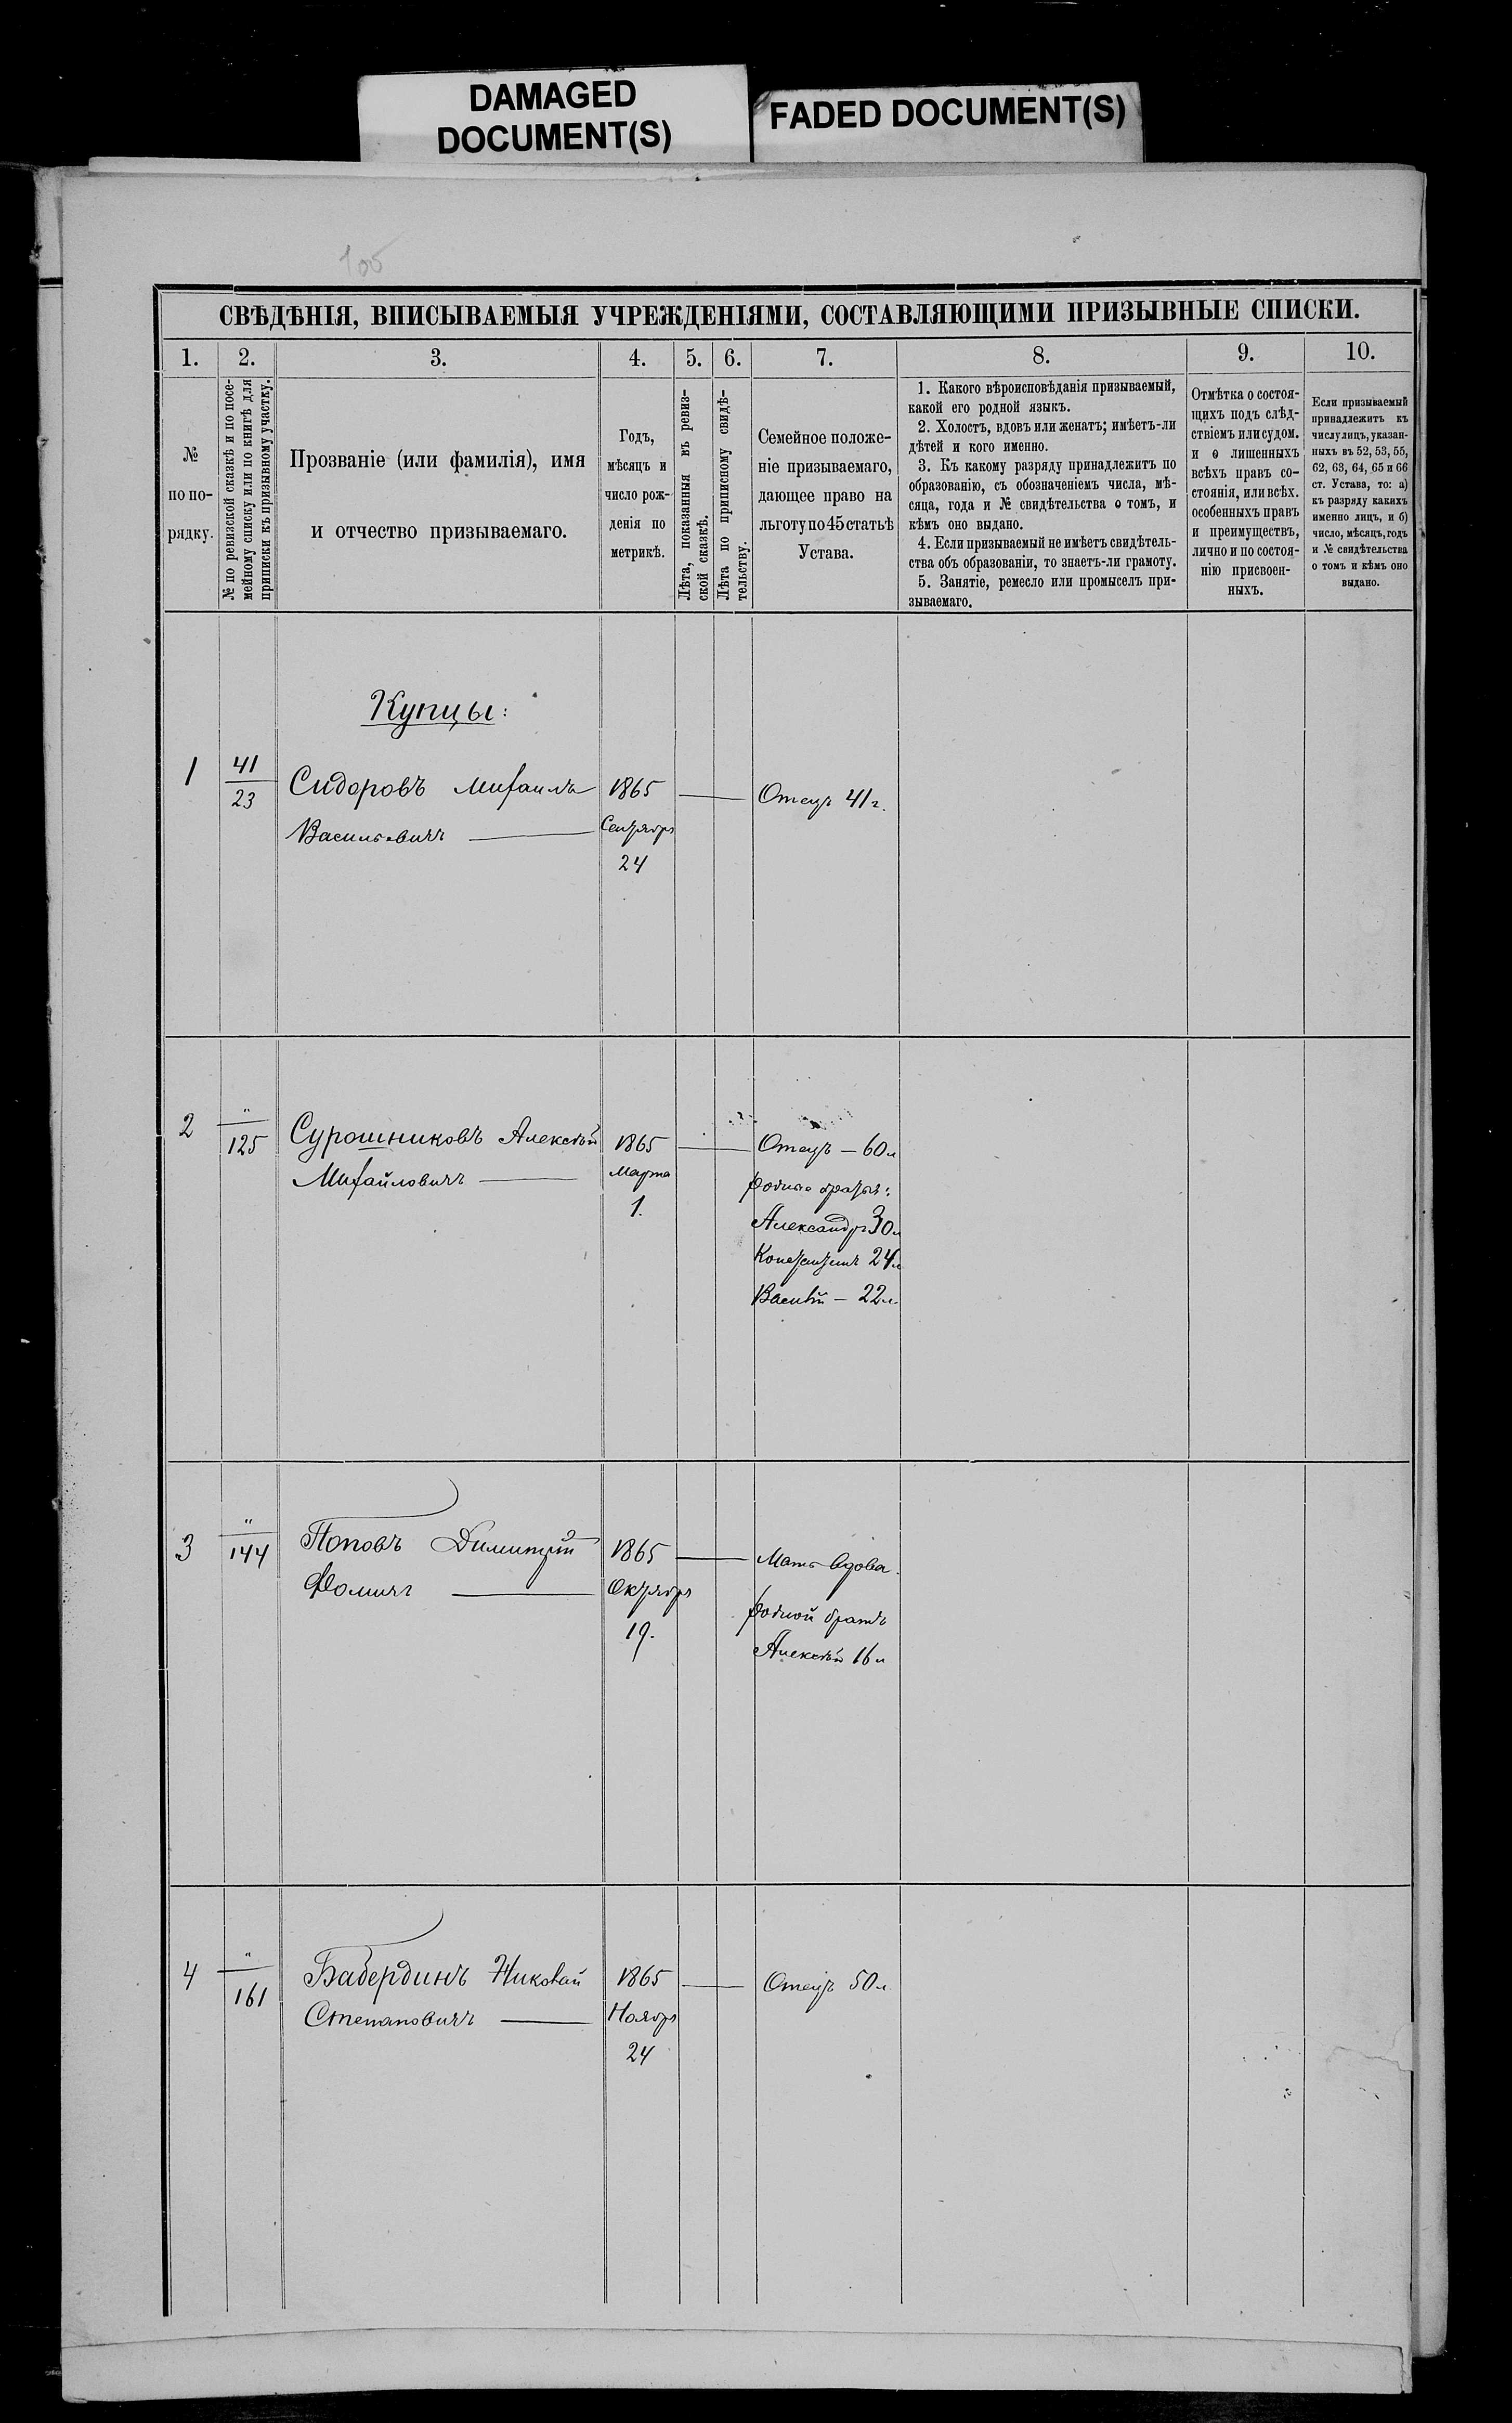 DAMAGED
DOCUMENT(S)
FADED DOCUMENT(S)
100
СВѢДѢНІЯ, ВПИСЫВАЕМЫЯ УЧРЕЖДЕНІЯМИ, СОСТАВЛЯЮЩИМИ ПРИЗЫВНЫЕ СПИСКИ.
1.
2.
3.
4.
5.
6.
7.
8.
9.
10.
№
по по-
рядку.
№ по ревизской сказкѣ и по посе-
мейному списку или по книгѣ для
приписки къ призывному участку.
Прозваніе (или фамилія), имя
и отчество призываемаго.
Годъ,
мѣсяцъ и
число рож-
денія по
метрикѣ.
Лѣта, показанныя въ ревиз-
ской сказкѣ.
Лѣта по приписному свидѣ-
тельству.
Семейное положе-
ніе призываемаго,
дающее право на
льготу по 45 статьѣ
Устава.
1. Какого вѣроисповѣданія призываемый,
какой его родной языкъ.
2. Холостъ, вдовъ или женатъ; имѣетъ-ли
дѣтей и кого именно.
3. Къ какому разряду принадлежитъ по
образованію, съ обозначеніемъ числа, мѣ-
сяца, года и № свидѣтельства о томъ, и
кѣмъ оно выдано.
4. Если призываемый не имѣетъ свидѣтель-
ства объ образованіи, то знаетъ-ли грамоту.
5. Занятіе, ремесло или промыселъ при-
зываемаго.
Отмѣтка о состоя-
щихъ подъ слѣд-
ствіемъ или судом.
и о лишенныхъ
всѣхъ правъ со-
стоянія, или всѣх.
особенныхъ правъ
и преимуществъ,
лично и по состоя-
нію присвоен-
ныхъ.
Если призываемый
принадлежитъ къ
числу лицъ, указан-
ныхъ въ 52, 53, 55,
62, 63, 64, 65 и 66
ст. Устава, то: а)
къ разряду какихъ
именно лицъ, и б)
число, мѣсяцъ, годъ
и № свидѣтельства
о томъ и кѣмъ оно
выдано.
Купцы:
1
41
23
Сидоровъ Михаилъ
Васильевичъ
1865
Сентября
24
Отецъ 41 г.
2
"
125
Сурошниковъ Алексѣй
Михайловичъ
1865
Марта
1.
Отецъ – 60 л
родные братья:
Александръ 30 л
Константинъ 24 л
Василій – 22 л.
3
"
144
Поповъ Димитрій
Ѳомичъ
1865
Октября
19.
Мать вдова.
родной братъ
Алексѣй 16 л
4
"
161
Бабердинъ Николай
Степановичъ
1865
Ноября
24
Отецъ 50 л